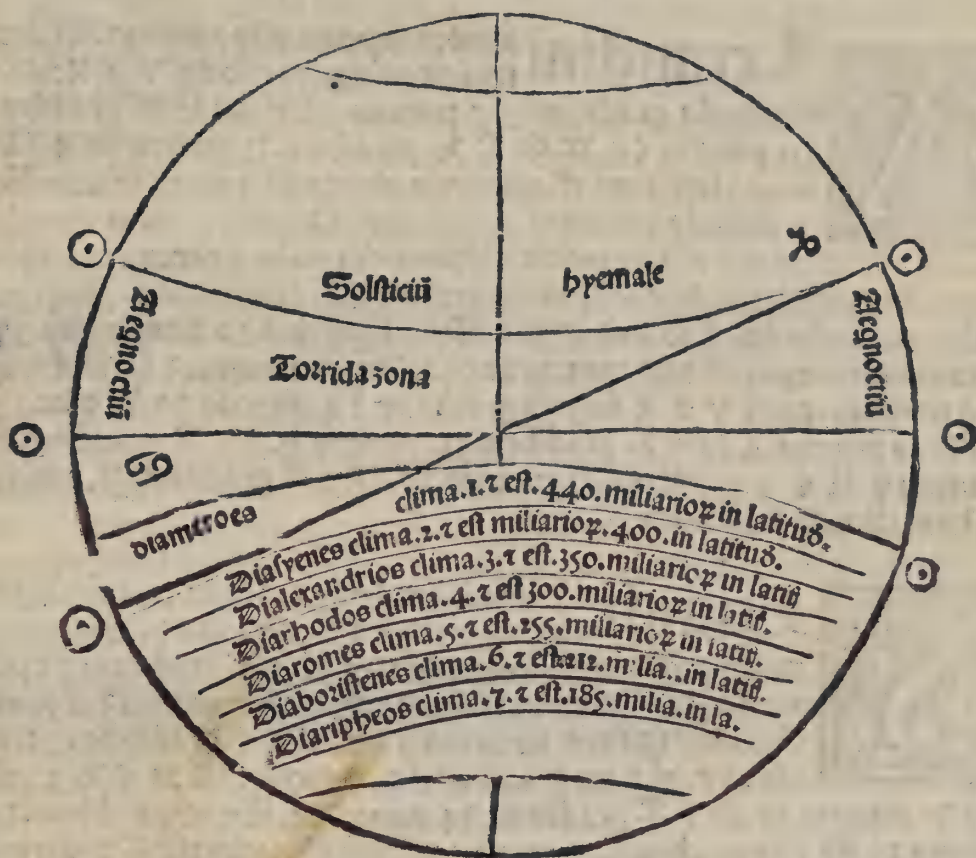 Solsticiū hyemale
Aequoctiū
Aequoctiū
Torrida zona
♑
♋
diameroes clima.1.⁊ est.440.miliarioꝝ in latitud̄.
Diasyenes clima.2.⁊ est miliarioꝝ.400.in latitud̄.
Dialexandrios clima.3.⁊ est.350.miliarioꝝ in latit̄
Diarhodos clima.4.⁊ est 300.miliarioꝝ in latit̄.
Diaromes clima.5.⁊ est.255.miliarioꝝ in latit̄.
Diaboristenes clima.6.⁊ est.212.milia..in latit̄.
Diaripheos clima.7.⁊ est.185.milia.in la.